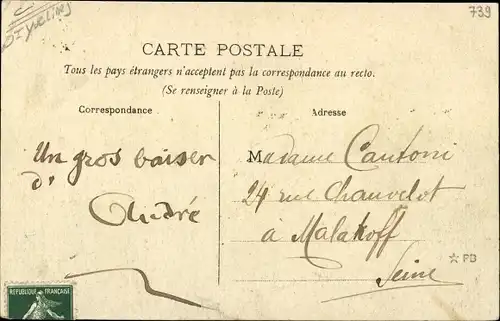 Yvelines
739
CARTE POSTALE
Tous les pays étrangers n'acceptent pas la correspondance au recto.
(Se renseigner à la Poste)
Correspondance
Un gros baiser
d'
André
Adresse
Madame Cantoni
24 rue Chauvelot
à Malakoff
Seine
☆ PB
REPUBLIQUE FRANÇAISE